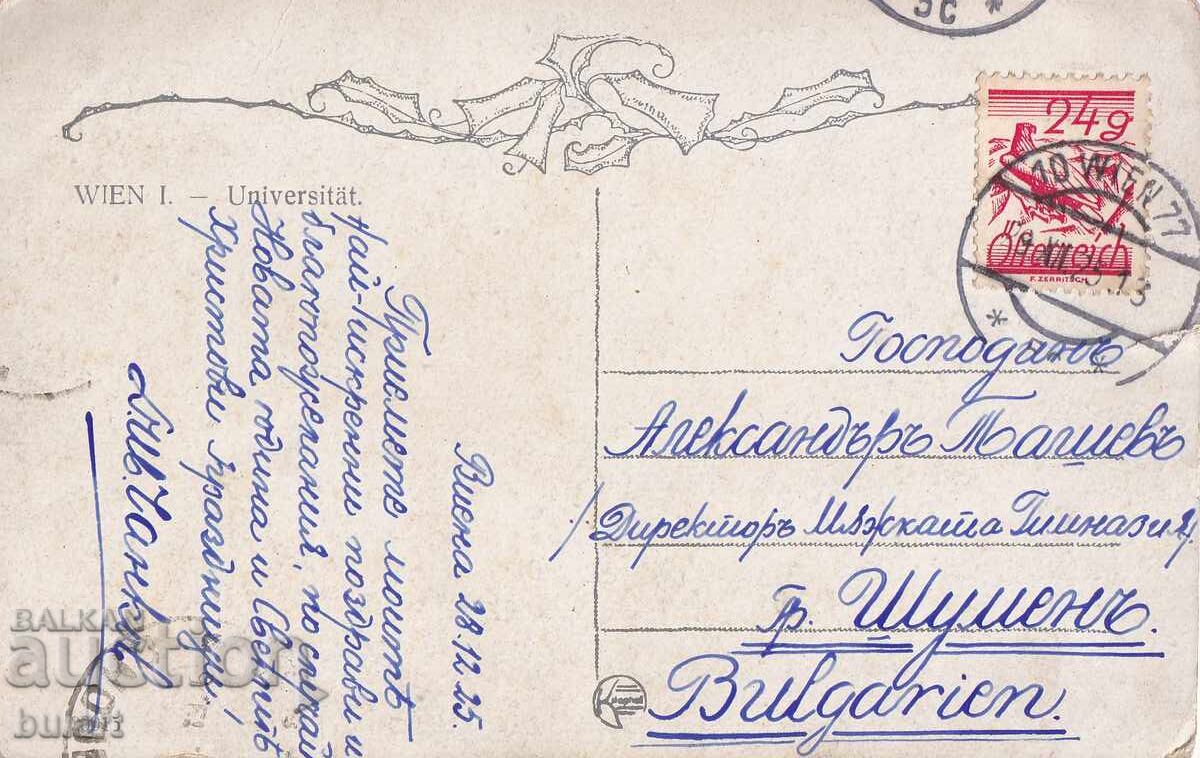 WIEN I. – Universität.
Виена 28.12.25.
Приемете моитѣ
най-искренни поздрави и
благопожелания, по случай
Новата година и Светитѣ
Христови празници!
Ив. Чанковъ
Господинъ
Александъръ Ташевъ
/Директоръ Мѫжката Гимназия/
Гр. Шуменъ.
Bulgarien.
24g
Österreich
F. ZERRITSCH
10 WIEN 77
BALKAN
auction